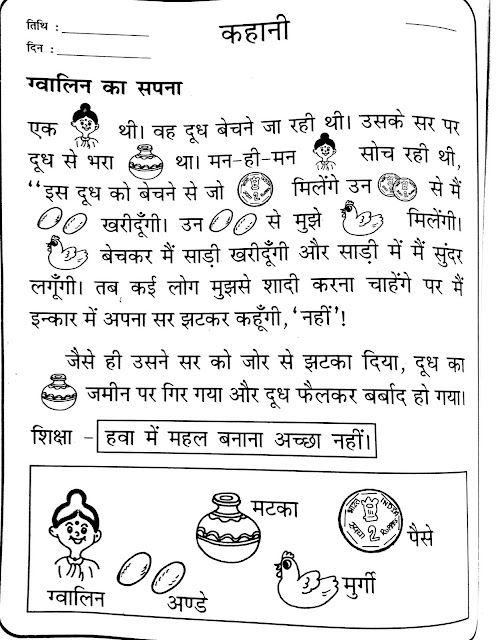 तिथि :
दिन :
कहानी
ग्वालिन का सपना
एक थी। वह दूध बेचने जा रही थी। उसके सर पर
दूध से भरा था। मन-ही-मन सोच रही थी,
“इस दूध को बेचने से जो मिलेंगे उन से मैं
खरीदूँगी। उन से मुझे मिलेंगी।
बेचकर मैं साड़ी खरीदूँगी और साड़ी में मैं सुंदर
लगूँगी। तब कई लोग मुझसे शादी करना चाहेंगे पर मैं
इन्कार में अपना सर झटकर कहूँगी, ‘नहीं’!
जैसे ही उसने सर को जोर से झटका दिया, दूध का
जमीन पर गिर गया और दूध फैलकर बर्बाद हो गया।
शिक्षा – हवा में महल बनाना अच्छा नहीं।
मटका
INDIA
2
RUPEES
पैसे
मुर्गी
ग्वालिन
अण्डे